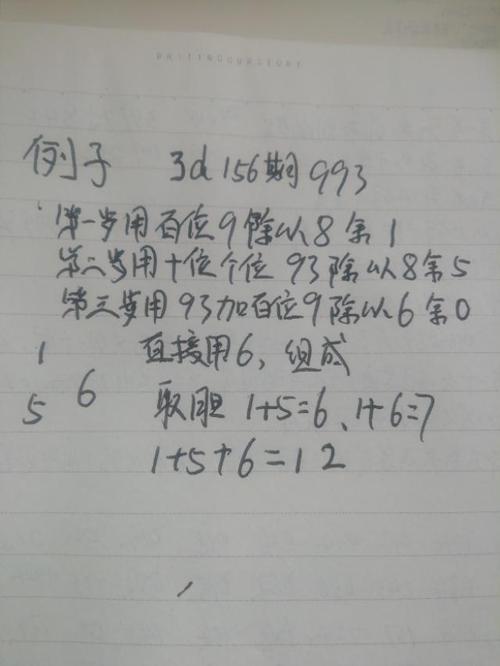 WRITINGOURSTORY
例子 3d 156期 993
第一步用百位9除以8余1
第二步用十位个位 93除以8余5
第三步用93加百位9除以6余0
1 直接用6, 组成
5 6 取胆 1+5=6、1+6=7
1+5+6=12